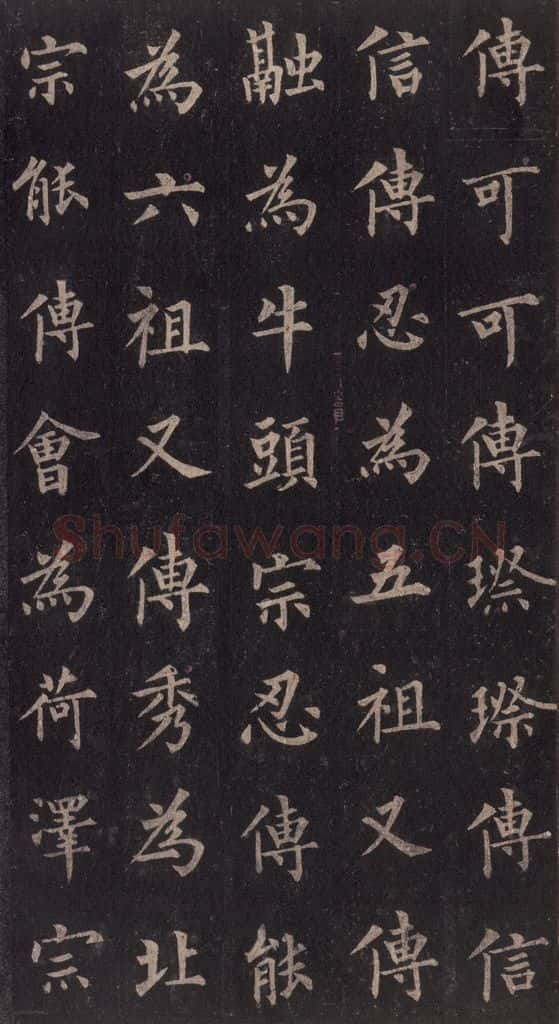 傳可可傳璨璨傳信
信傳忍為五祖又傳
融為牛頭宗忍傳能
為六祖又傳秀為北
宗能傳會為荷澤宗
Shufawang.CN